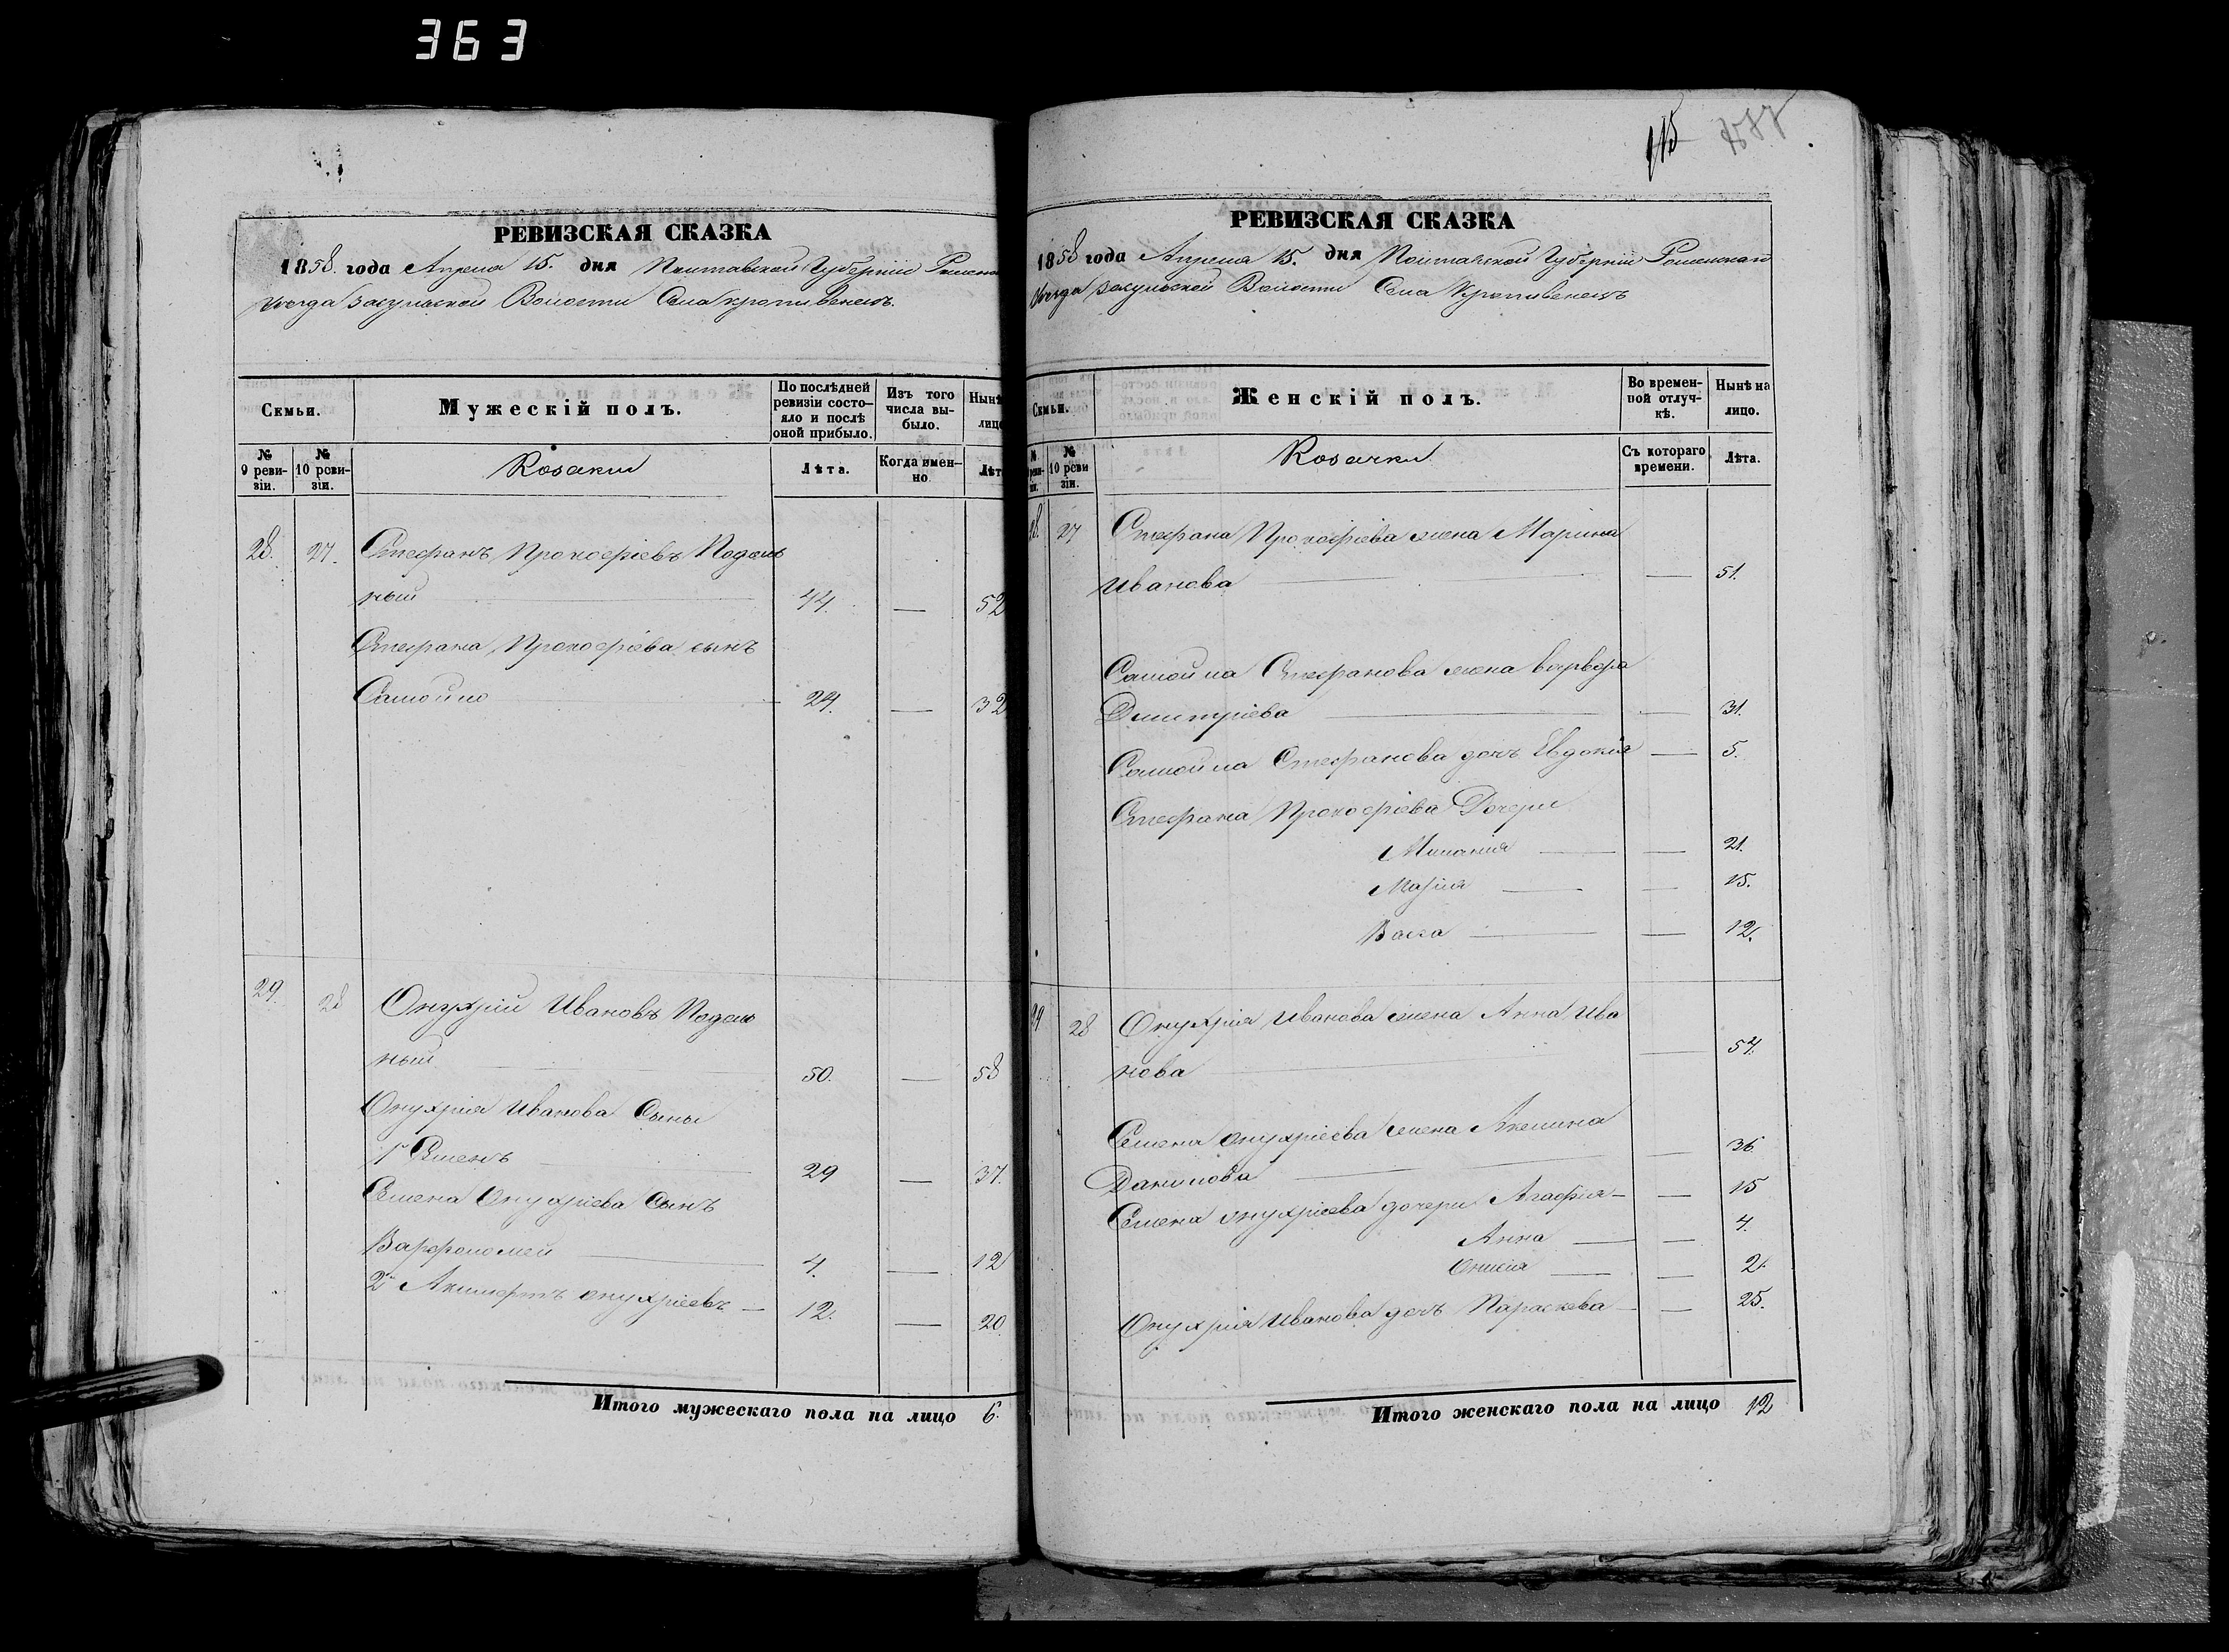 363
РЕВИЗСКАЯ СКАЗКА
1858. года Апреля 15. дня Полтавской Губерніи Роменс
Уезда Засульской Волости Села Кропивенецъ.
Семьи.
Мужескій полъ.
По послѣдней ревизіи состояло и послѣ оной прибыло.
Изъ того числа выбыло.
Нынѣ лицо
№ 9 ревизіи.
№ 10 ревизіи.
Козаки
Лѣта.
Когда именно
Лѣт
28. 27. Стефанъ Прокофіевъ Подоль
ный 44. — 52
Стефана Прокофіева сынъ
Самойло 24. — 32
29. 28 Онуфрій Ивановъ Подоль
ный 50. — 58
Онуфрія Иванова Сыны
1й Семенъ 29 — 37.
Семена Онуфріева Сынъ
Варфоломей 4. — 12
2й онуфріевъ — 12. — 20.
Итого мужескаго пола на лицо 6.
115
РЕВИЗСКАЯ СКАЗКА
1858 года Апреля 15. дня Полтавской Губерніи Роменскаго
Уезда Засульской Волости Села Кропивенецъ
Семьи.
Женскій полъ.
Во временной отлучкѣ.
Нынѣ на лицо.
№ 10 ревизіи.
Козачки
Съ котораго времени.
Лѣта.
28. 27 Стефана Прокофіева жена Марина
Иванова — 51.
Самойла Стефанова жена Варвара
Дмитріева — 31.
Самойла Стефанова дочь Евдокія — 5.
Стефана Прокофіева Дочери
Миланія — 21.
Марія — 15.
Васса — 12.
29 28 Онуфрія Иванова жена Анна Ива
нова — 54.
Семена онуфріева жена Акилина
Данилова — 36.
Семена онуфріева дочери Агафія — 15
Анна — 4.
— 2.
Онуфрія Иванова дочь Параскева — 25.
Итого женскаго пола на лицо 12